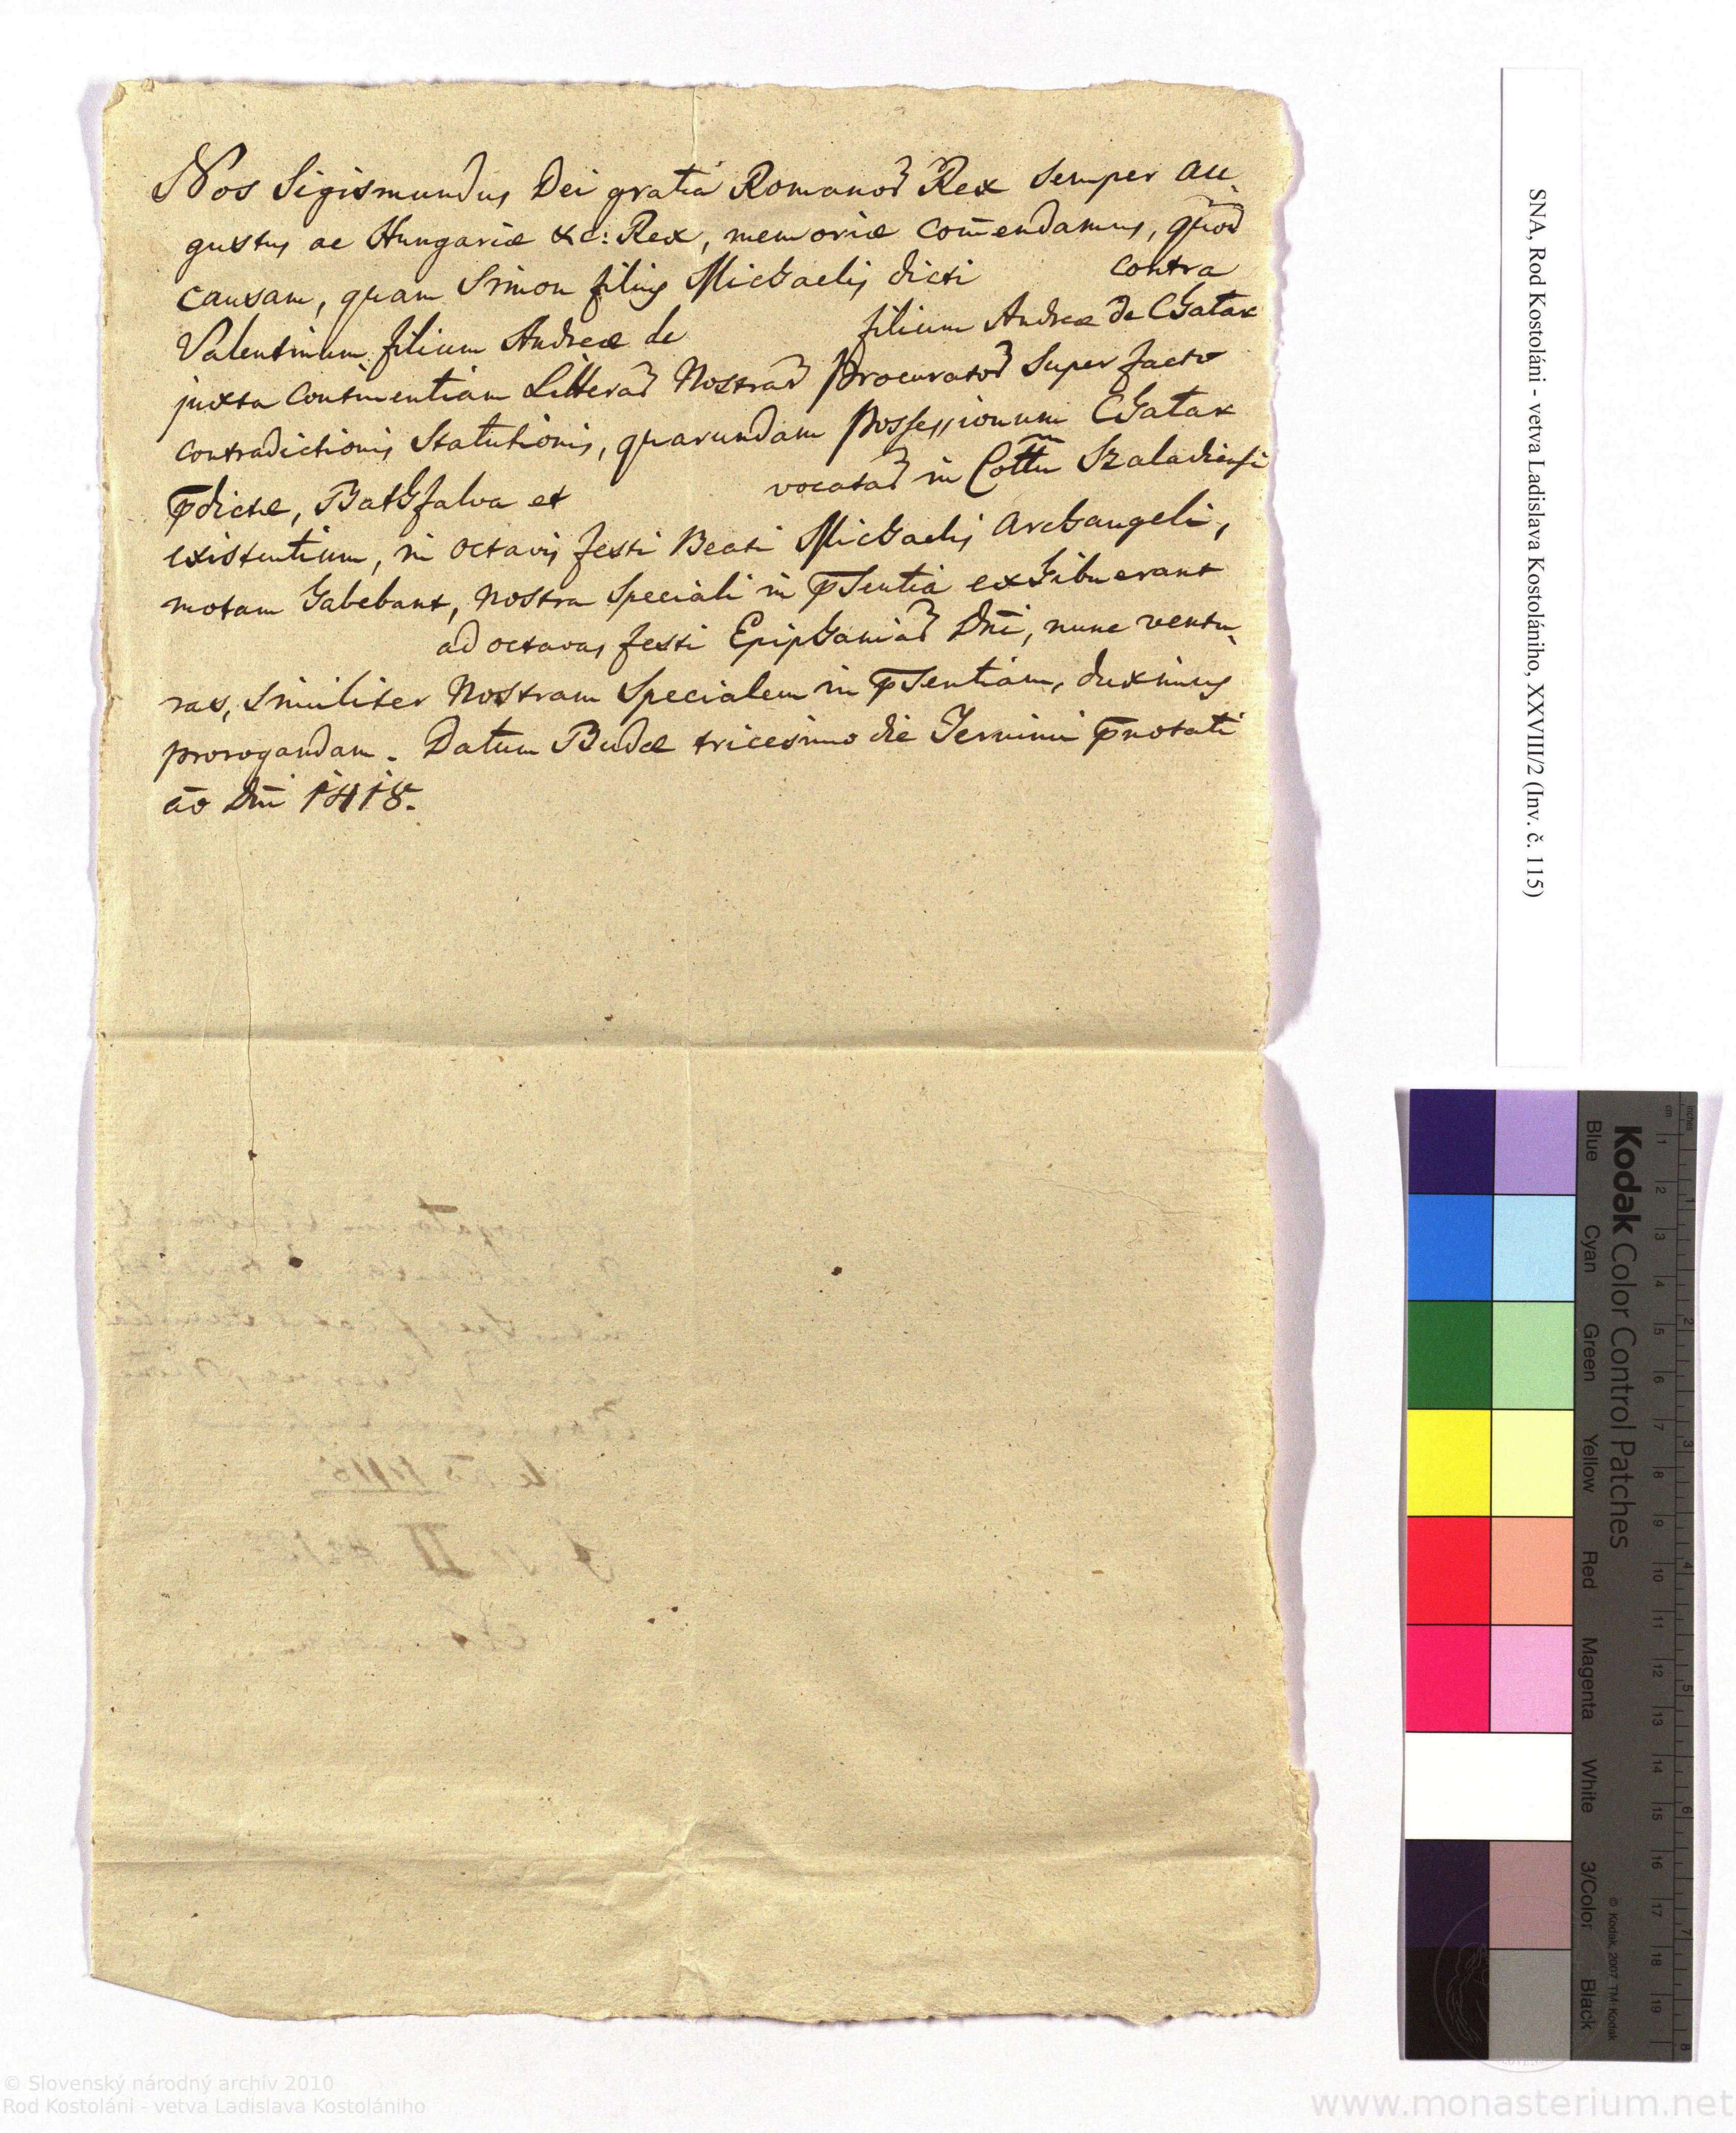 Nos Sigismundus Dei gratia Romanoꝝ Rex semper Au
gustus ac Hungariæ &c: Rex, memoriæ com̄endamus, quod
causam, quam Simon filius Michaelis dicti contra
Valentinum filium Andreæ de filium Andreæ de Chatar
juxta continentiam Litteraꝝ Nostraꝝ Procuratoꝝ super facto
contradictionis Statutionis, quarundam Possessionum Chatar
p̄dictæ, Bathfalva et vocataꝝ in Cottu Szaladiensi
existentium, in octavis festi Beati Michaelis Archangeli,
motam habebant, nostra speciali in p̄sentia exhibuerant
ad octavas festi Epiphaniaꝝ Dn̄i, nunc ventu
ras, similiter Nostram Specialem in p̄sentiam, duximus
prorogandam. Datum Budæ tricesimo die Termini p̄notati
āo Dn̄i 1418.
SNA, Rod Kostoláni - vetva Ladislava Kostolániho, XXVIII/2 (Inv. č. 115)
Kodak Color Control Patches
Blue
Cyan
Green
Yellow
Red
Magenta
White
3/Color
Black
© Kodak, 2007 TM: Kodak
cm 1 2 3 4 5 6 7 8 9 10 11 12 13 14 15 16 17 18 19
inches 1 2 3 4 5 6 7 8
© Slovenský národný archív 2010
Rod Kostoláni - vetva Ladislava Kostolániho
www.monasterium.net